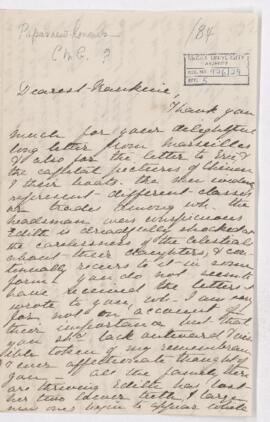 /84
Dearest Frankime,
Thank you
much for your delightful
long letter from Marseilles
& also for the letter to Eric &
the capital pictures of
& their hearts. the men
represent different classes
or trades among wh. the
headsman was conspicuous
Edith is dreadfully shocked at
the carelessness of the Celestial
about their daughters, & con-
tinually recurs to it in some
form. you do not seem to
have received the letters I
wrote to you, wh. I am sorry
for, not on account of
their importance but that
you shd lack outward & visi-
ble token of my remembrance
& ever affectionate thought of
you. all the family here
are thriving Edith has lost
her two lower teeth, & large
new ones begin to appear while